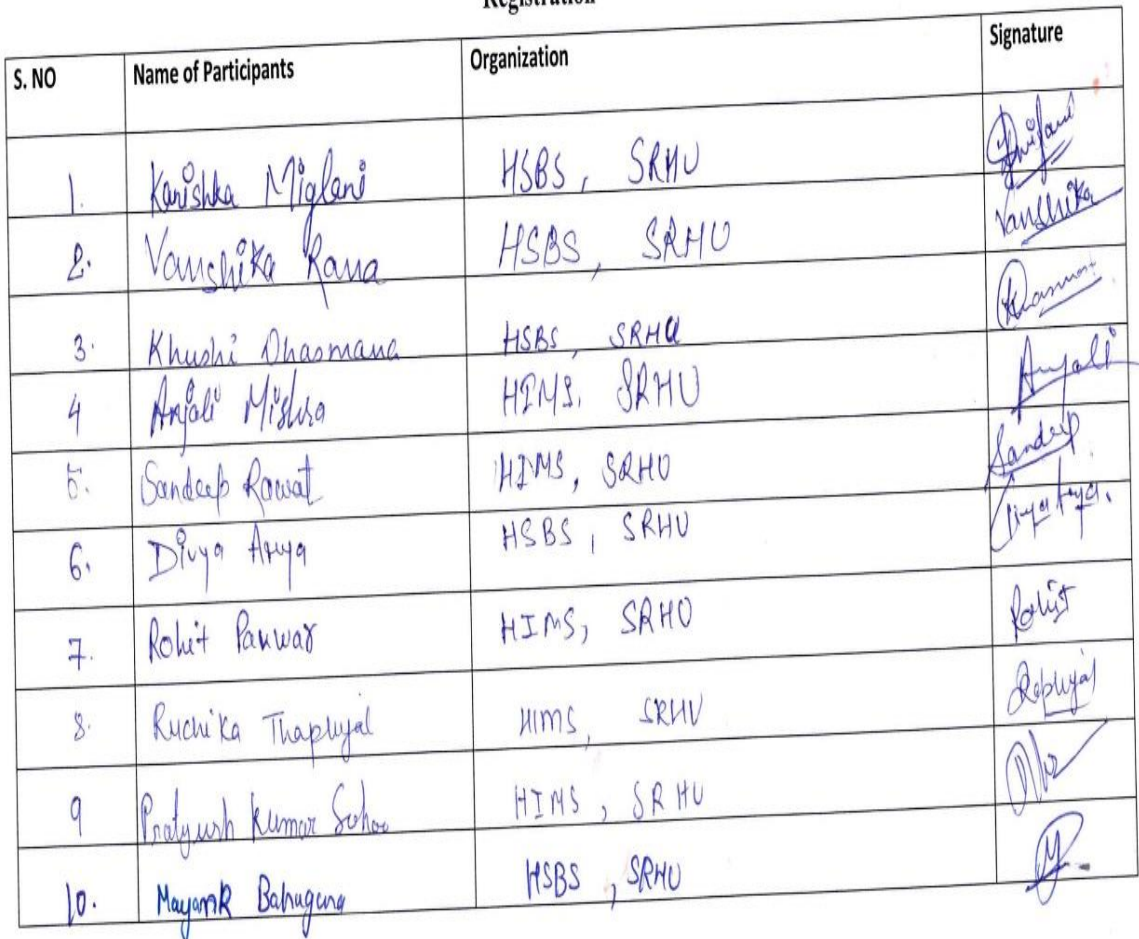 Registration
S. NO Name of Participants Organization Signature
1. Kanishka Miglani HSBS, SRHU
2. Vanshika Rana HSBS, SRHU Vanshika
3. Khushi Dhasmana HSBS, SRHU
4 Anjali Mishra HIMS, SRHU Anjali
5. Sandeep Rawat HIMS, SRHU Sandeep
6. Divya Arya HSBS, SRHU Divya Arya.
7. Rohit Panwar HIMS, SRHU Rohit
8. Ruchika Thapliyal HIMS, SRHU
9 Pratyush Kumar Sahoo HIMS, SRHU
10. Mayank Bahuguna HSBS, SRHU